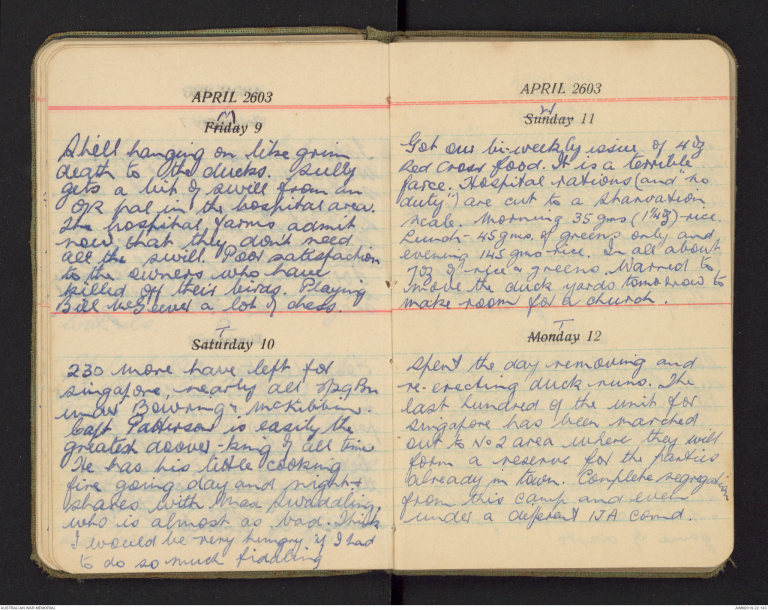 APRIL 2603
M
Friday 9
Still hanging on like grim
death to the ducks. Sully
gets a bit of swill from an
OR pal in the hospital area.
The hospital farms admit
now that they don't need
all the swill. Poor satisfaction
to the owners who have
killed off their birds. Playing
Bill a lot of chess.
T
Saturday 10
230 more have left for
Singapore, nearly all 2/29 Bn
under Bowring & McKibbin.
Capt Patterson is easily the
greatest doover-king of all time
He has his little cooking
fire going day and night &
shares with Max Swadaling,
who is almost as bad. Think
I would be very hungry if I had
to do so much fiddling
APRIL 2603
W
Sunday 11
Got our bi-weekly issue of 4 oz
Red Cross food. It is a terrible
farce. Hospital rations (and "no
duty") are cut to a starvation
scale. Morning 35 gms (1¼ oz) rice.
Lunch - 45 gms. of greens only and
evening 145 gms rice. In all about
7 oz of rice & greens. Warned to
move the duck yards tomorrow to
make room for a church.
T
Monday 12
Spent the day removing and
re-erecting duck runs. The
last hundred of the unit for
Singapore has been marched
out to No 2 area where they will
form a reserve for the parties
already in town. Complete segregation
from this camp and even
under a different IJA comd.
AUSTRALIAN WAR MEMORIAL